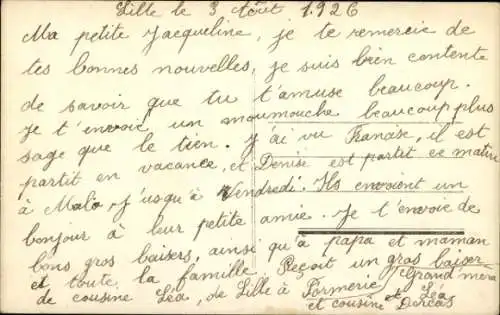 Lille le 3 Août 1926
Ma petite Jacqueline, je te remercie de
tes bonnes nouvelles, je suis bien contente
de savoir que tu t'amuse beaucoup.
Je t'envoie un moumouche beaucoup plus
sage que le tien. J'ai vu Francise, il est
partit en vacance, et Denise est partit ce matin
à Malo, j'usqu'à Vendredi. Ils envoient un
bonjour à leur petite amie. Je t'envoie de
bons gros baisers, ainsi qu'à papa et maman
et toute la famille. Reçoit un gros baiser
de cousine Léa, de Lille à Formerie, Grand'mère
et cousine Dorcas
et Léa